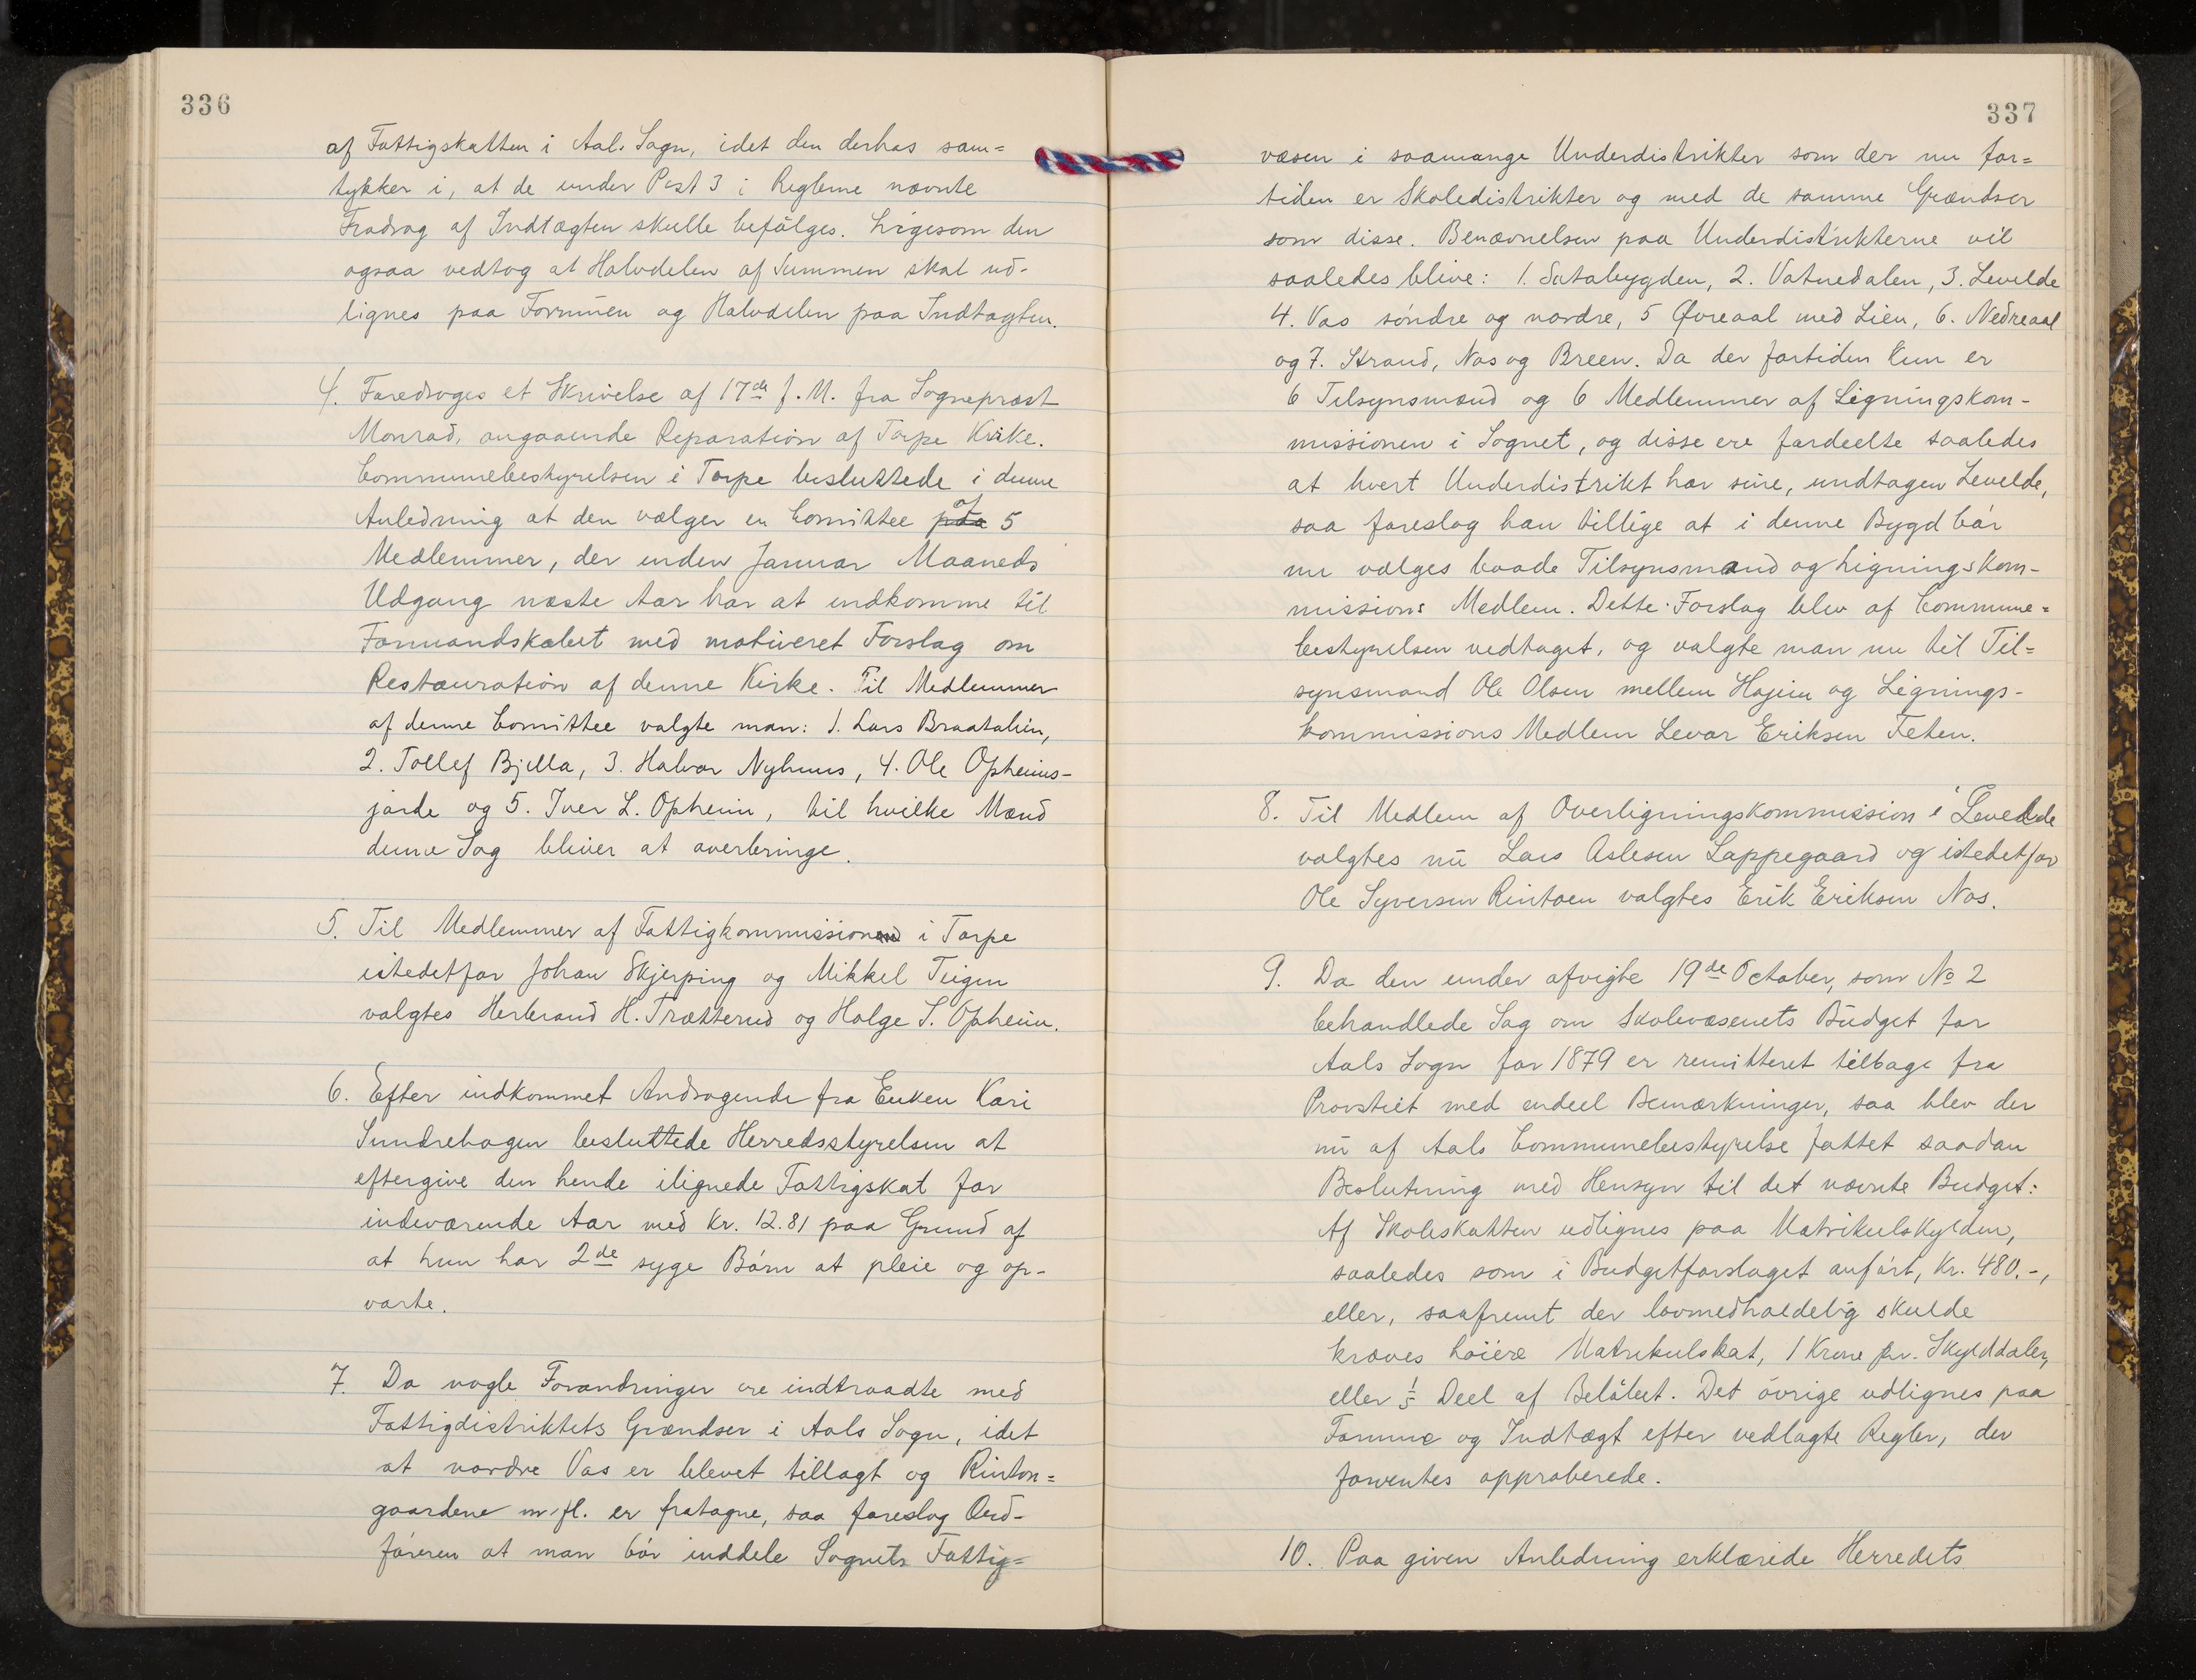 336
af Fattigskatten i Aal. Sogn, idet den derhos sam=
tykker i, at de under Post 3 i Reglerne nævnte
Fradrag af Indtægten skulle befølges. Ligesom den
ogsaa vedtog at Halvdelen af Summen skal ud-
lignes paa Formuen og Halvdelen paa Indtægten.
4. Foredroges et Skrivelse af 17de f. M. fra Sogneprest
Monrad, angaaende Reparation af Torpe Kirke.
Communebestyrelsen i Torpe besluttede i denne
Anledning at den vælger en Comittee af 5
Medlemmer, der inden Januar Maaneds
Udgang næste Aar har at indkomme til
Formandskabet med motiveret Forslag om
Restauration af denne Kirke. Til Medlemmer
af denne Comittee valgte man: 1. Lars Braatalien,
2. Tollef Bjella, 3. Halvor Nyhuus, 4. Ole Opheims-
jorde og 5. Iver L. Opheim, til hvilke Mænd
denne Sag bliver at overbringe.
5. Til Medlemmer af Fattigkommissionen i Torpe
istedetfor Johan Skjerping og Mikkel Teigen
valgtes Herbrand H. Trætterud og Holge S. Opheim.
6. Efter indkommet Andragende fra Enken Kari
Sundrehagen besluttede Herredsstyrelsen at
eftergive den hende ilignede Fattigskat for
indeværende Aar med Kr. 12.81 paa Grund af
at hun har 2de syge Børn at pleie og op-
varte.
7. Da nogle Forandringer ere indtraadte med
Fattigdistriktets Grændser i Aals Sogn, idet
at nordre Vas er blevet tillagt og Rinton=
gaardene m. fl. er fratagne, saa foreslog Ord-
føreren at man bør inddele Sognets Fattig=
337
væsen i saamange Underdistrikter som der nu for=
tiden er Skoledistrikter og med de samme Grændser
som disse. Benævnelsen paa Underdistrikterne vil
saaledes blive: 1. Satabygden, 2. Vatnedalen, 3. Levelde
4. Vas søndre og nordre, 5 Øvreaal med Lien, 6. Nedreaal
og 7. Strand, Nos og Breen. Da der fortiden kun er
6 Tilsynsmænd og 6 Medlemmer af Ligningskom-
missionen i Sognet, og disse ere fordeelte saaledes
at hvert Underdistrikt har sine, undtagen Levelde,
saa foreslog han tillige at i denne Bygd bør
nu vælges baade Tilsynsmand og Ligningskom-
missions Medlem. Dette Forslag blev af Commune=
bestyrelsen vedtaget, og valgte man nu til Til=
synsmand Ole Olsen mellem Hajem og Lignings-
Commissions Medlem Levor Eriksen Feten.
8. Til Medlem af Overligningskommission i Levelde
valgtes nu Lars Aslesen Lappegaard og istedetfor
Ole Syversen Rintoen valgtes Erik Eriksen Nos.
9. Da den under afvigte 19de October, som No 2
behandlede Sag om Skolevæsenets Budget for
Aals Sogn for 1879 er remitteret tilbage fra
Provstiet med endeel Bemærkninger, saa blev der
nu af Aals Communebestyrelse fattet saadan
Beslutning med Hensyn til det nævnte Budget:
Af Skoleskatten udlignes paa Matrikulskylden,
saaledes som i Budgetforslaget anført, Kr. 480.-,
eller, saafremt der lovmedholdelig skulde
kræves høiere Matrikulskat, 1 Krone pr. Skylddaler,
eller 1/5 Deel af Beløbet. Det øvrige udlignes paa
Formue og Indtægt efter vedlagte Regler, der
forventes approberede.
10. Paa given Anledning erklærede Herredets